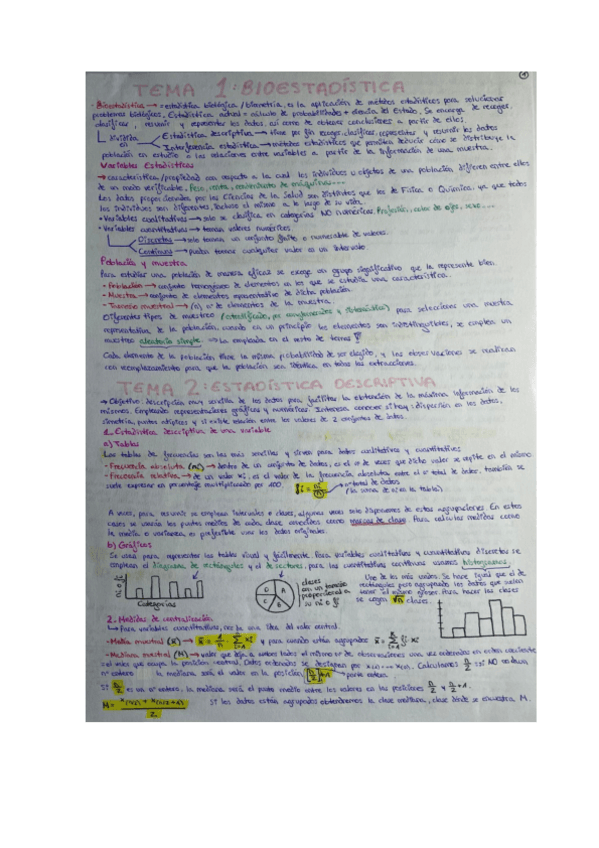 TEMA 1: BIOESTADÍSTICA
• Bioestadística → = estadística biológica / biometría, es la aplicación de métodos estadísticos para solucionar
problemas biológicos. Estadística actual = cálculo de probabilidades + ciencia del Estado. Se encarga de recoger,
clasificar, resumir y representar los datos, así como de obtener conclusiones a partir de ellos.
dividida en
Estadística descriptiva → tiene por fin recoger, clasificar, representar y resumir los datos
Inferencia estadística → métodos estadísticos que permiten deducir cómo se distribuye la
población en estudio o las relaciones entre variables a partir de la información de una muestra.
Variables Estadísticas
→ característica/propiedad con respecto a la cual los individuos u objetos de una población difieren entre ellos
de un modo verificable. Peso, renta, rendimiento de máquinas...
Los datos proporcionados por las Ciencias de la Salud son distintos que los de Física o Química, ya que todos
los individuos son diferentes, incluso el mismo a lo largo de su vida.
• Variables cualitativas → solo se clasifica en categorías NO numéricas. Profesión, color de ojos, sexo...
• Variables cuantitativas → toman valores numéricos.
Discretas → solo toman un conjunto finito o numerable de valores.
Continuas → pueden tomar cualquier valor en un intervalo.
Población y muestra
Para estudiar una población de manera eficaz se escoge un grupo significativo que la represente bien.
• Población → conjunto homogéneo de elementos en los que se estudia una característica.
• Muestra → conjunto de elementos representativo de dicha población.
• Tamaño muestral → (n), nº de elementos de la muestra.
Diferentes tipos de muestreo (estratificado, por conglomerados y sistemático) para seleccionar una muestra
representativa de la población, cuando en un principio los elementos son indistinguibles, se emplea un
muestreo aleatorio simple. → la empleada en el resto de temas
Cada elemento de la población tiene la misma probabilidad de ser elegido, y las observaciones se realizan
con reemplazamiento para que la población sea idéntica en todas las extracciones.
TEMA 2: ESTADÍSTICA DESCRIPTIVA
→ Objetivo: descripción muy sencilla de los datos para facilitar la obtención de la máxima información de los
mismos. Empleando representaciones gráficas y numéricas. Interesa conocer si hay: dispersión en los datos,
simetría, puntos atípicos y si existe relación entre los valores de 2 conjuntos de datos.
1. Estadística descriptiva de una variable
a) Tablas
Las tablas de frecuencias son las más sencillas y sirven para datos cualitativos y cuantitativos.
• Frecuencia absoluta (ni) → dentro de un conjunto de datos, es el nº de veces que dicho valor se repite en el mismo
• Frecuencia relativa → de un valor xi, es el valor de la frecuencia absoluta entre el nº total de datos. También se
suele expresar en porcentaje multiplicando por 100. fi = ni/n → nº total de datos
(la suma de ni en la tabla).
A veces, para resumir se emplean intervalos o clases, algunas veces solo disponemos de estas agrupaciones. En estos
casos se usarán los puntos medios de cada clase conocidos como marcas de clase. Para calcular medidas como
la media o varianza, es preferible usar los datos originales.
b) Gráficos
Se usan para representar las tablas visual y fácilmente. Para variables cualitativas y cuantitativas discretas se
emplean el diagrama de rectángulos y el de sectores, para las cuantitativas continuas usamos histogramas.
ni o fi
Categorías
D A
C B
clases con un tamaño proporcional a su ni o fi
Uno de los más usados. Se hace igual que el de
rectángulos pero agrupando los datos que suelen
Para hacer las clases
se cogen √n clases.
2. Medidas de centralización
→ Para variables cuantitativas, dar la una idea del valor central.
y para cuando están agrupados
• Mediana muestral (M) → valor que deja a ambos lados el mismo nº de observaciones una vez ordenadas en orden creciente
= al valor que ocupa la posición central. Datos ordenados se designan por x(1) ... x(n). Calculamos n/2 si NO es un
nº entero la mediana será el valor en la posición [n/2]+1 → parte entera.
Si n/2 es un nº entero, la mediana será el punto medio entre los valores en las posiciones n/2 y n/2 +1.
M = (x(n/2) + x(n/2+1)) / 2 Si los datos están agrupados obtendremos la clase mediana, clase donde se encuentra M.